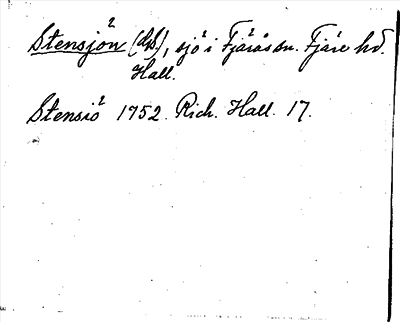 Stensjön (dys.), sjö i Fjärås sn. Fjäre hd.
Hall.
Stensiö 1752. Rich. Hall. 17.